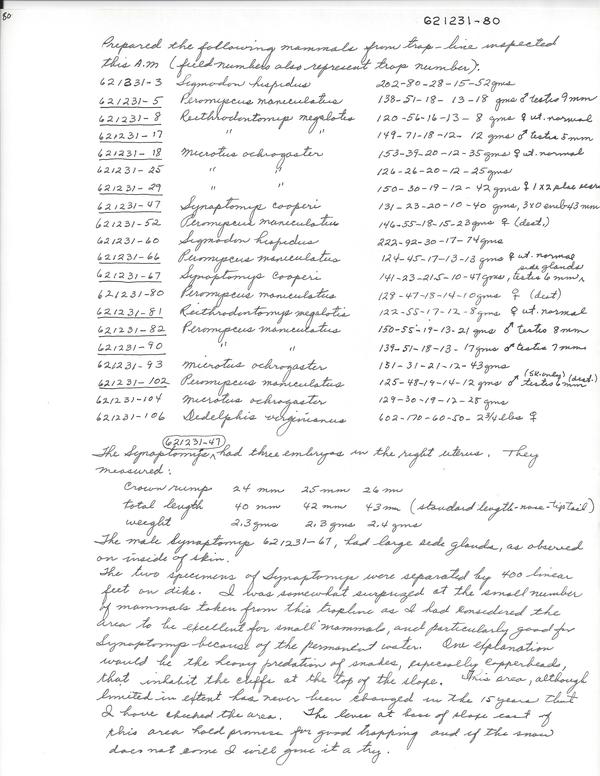 80
621231-80
Prepared the following mammals from trap-line inspected
this A.M (field numbers also represent trap number).
621231-3 Sigmodon hispidus 202-80-28-15-52gms
621231-5 Peromyscus maniculatus 138-51-18-13-18 gms ♂ testis 9mm
621231-8 Reithrodontomys megalotis 120-56-16-13-8 gms ♀ ut. normal
621231-17 " " 149-71-18-12-12 gms ♂ testis 5mm
621231-18 Microtus ochrogaster 153-39-20-12-35gms ♀ ut. normal
621231-25 " " 126-26-20-12-25gms
621231-29 " " 150-30-19-12-42gms ♀ 1x2 plac scars
621231-47 Synaptomys cooperi 131-23-20-10-40 gms, 3x0 emb 43mm
621231-52 Peromyscus maniculatus 146-55-18-15-23gms ♀ (dest.)
621231-60 Sigmodon hispidus 222-92-30-17-74gms
621231-66 Peromyscus maniculatus 124-45-17-13-13 gms ♀ ut. normal
side glands
621231-67 Synaptomys cooperi 141-23-21.5-10-47gms, testis 6mm ^
621231-80 Peromyscus maniculatus 129-47-18-14-10gms ♀ (dest)
621231-81 Reithrodontomys megalotis 122-55-17-12-8gms ♀ ut. normal
621231-82 Peromyscus maniculatus 150-55-19-13-21 gms ♂ testis 8mm
621231-90 " " 139-51-18-13-17gms ♂ testis 7mm
621231-93 Microtus ochrogaster 151-31-21-12-43gms
(SK.only) (dest.)
621231-102 Peromyscus maniculatus 125-48-19-14-12gms ♂ testis 6mm
621231-104 Microtus ochrogaster 129-30-19-12-28gms
621231-106 Dedelphis virginianus 602-170-60-50-2¾ lbs ♀
621231-47
The Synaptomys ^ had three embryos in the right uterus. They
measured:
Crown rump 24 mm 25mm 26mm
total length 40 mm 42 mm 43mm (standard length-nose-tip tail)
weight 2.3gms 2.3gms 2.4gms
The male Synaptomys 621231-67, had large side glands, as observed
on inside of skin.
The two specimens of Synaptomys were separated by 400 linear
feet on dike. I was somewhat surprized at the small number
of mammals taken from this trapline as I had considered the
area to be excellent for small mammals, and particularly good for
Synaptomys because of the permanent water. One explanation
would be the heavy predation of snakes, especially Copperheads,
that inhabit the cliffs at the top of the slope. This area, although
limited in extent has never been changed in the 15 years that
I have checked the area. The levee at base of slope east of
this area hold promise for good trapping and if the snow
does not come I will give it a try.